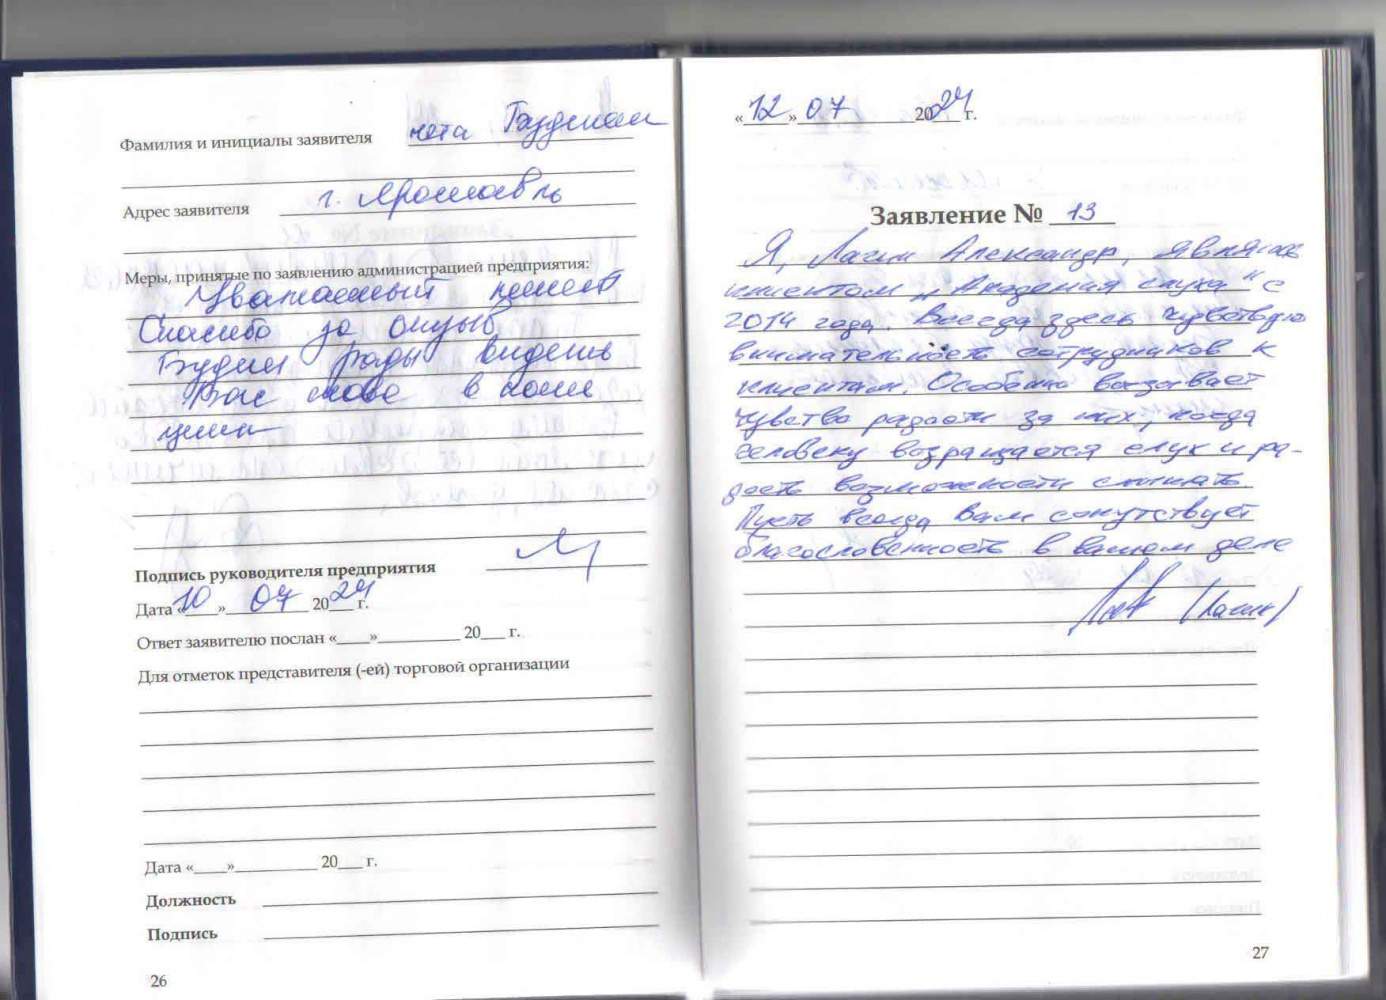 Фамилия и инициалы заявителя чета
Адрес заявителя г. Ярославль
Меры, принятые по заявлению администрацией предприятия:
Уважаемый клиент
Спасибо за отзыв
Будем рады видеть
Вас снова в
Подпись руководителя предприятия
Дата «10» 07 2024 г.
Ответ заявителю послан «____»__________ 20___ г.
Для отметок представителя (-ей) торговой организации
Дата «____»__________ 20___ г.
Должность
Подпись
26
«12» 07 2024 г.
Заявление № 13
Я, Лагин Александр, являюсь
клиентом „Академия слуха" с
2014 года. Всегда здесь чувствую
внимательность сотрудников к
клиентам. Особенно вызывает
чувство радости за них, когда
человеку возращается слух и ра-
дость возможности слышать.
Пусть всегда Вам сопутствует
благословенность в вашем деле
(Лагин)
27